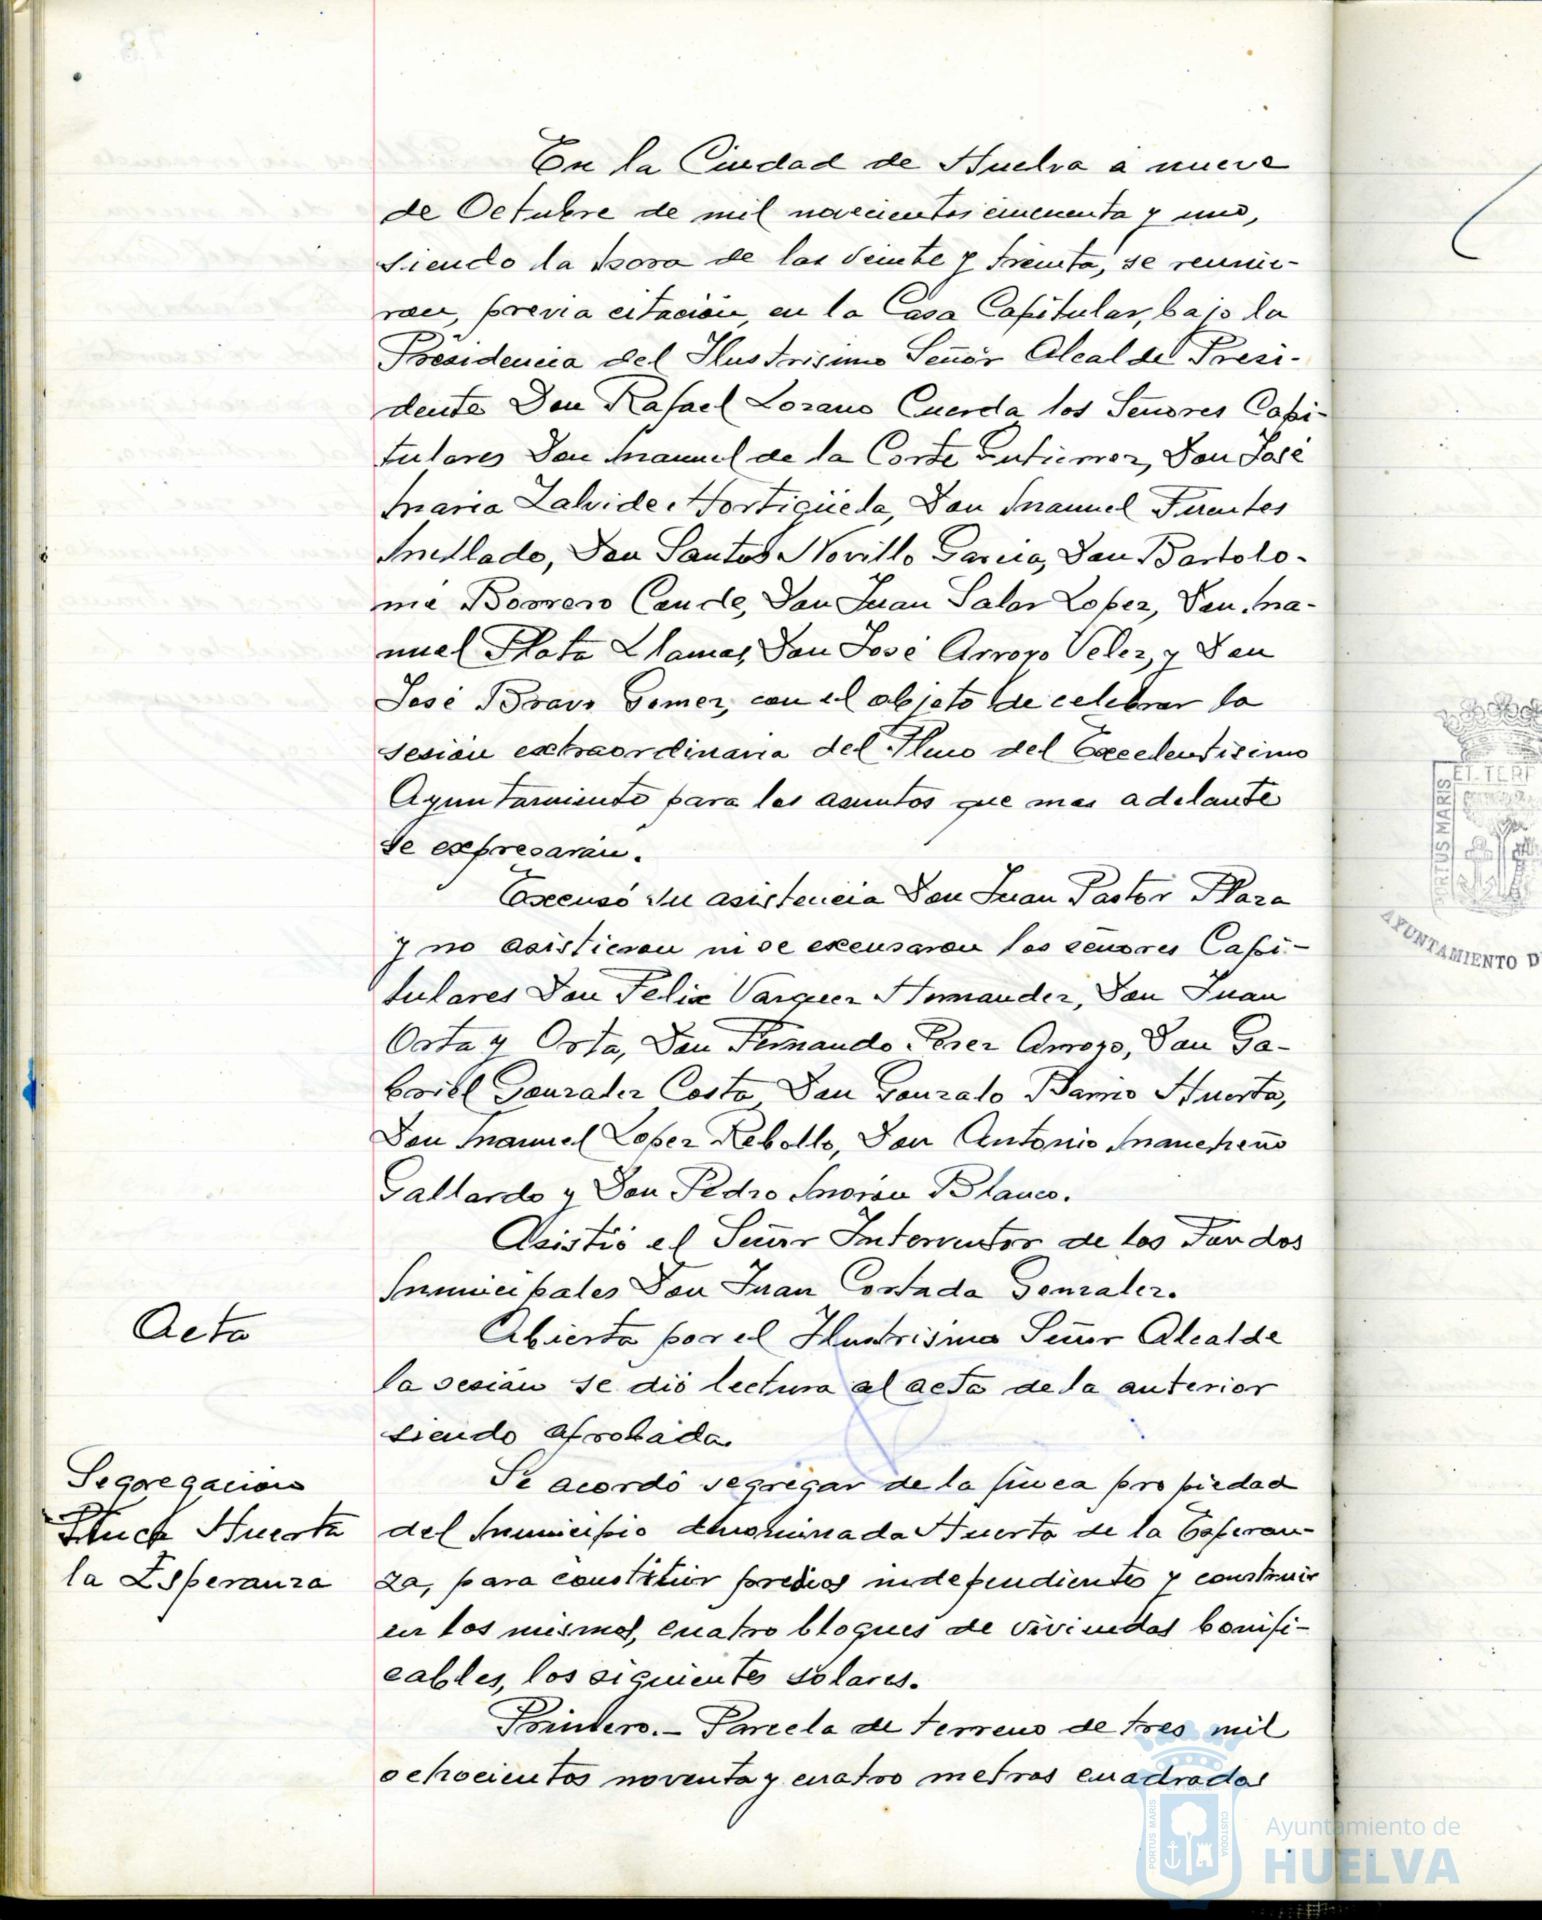 En la Ciudad de Huelva a nueve
de Octubre de mil novecientos cincuenta y uno,
siendo la hora de las veinte y treinta, se reunie-
ron, previa citación, en la Casa Capitular, bajo la
Presidencia del Ilustrisimo Señor Alcalde Presi-
dente Don Rafael Lozano Cuerda los Señores Capi-
tulares Don Manuel de la Corte Gutierrez, Don José
Maria Zalvide Hortigüela, Don Manuel Fuentes
Mellado, Don Santos Novillo Garcia, Don Bartolo-
mé Borrero Conde, Don Juan Salas Lopez, Don Ma-
nuel Plata Llamas, Don José Arroyo Velez, y Don
José Bravo Gomez, con el objeto de celebrar la
sesión extraordinaria del Pleno del Excelentisimo
Ayuntamiento para los asuntos que mas adelante
se expresarán.
Excusó su asistencia Don Juan Pastor Plaza
y no asistieron ni se excusaron los señores Capi-
tulares Don Felix Vazquez Hernandez, Don Juan
Orta y Orta, Don Fernando Perez Arroyo, Don Ga-
briel Gonzalez Costa, Don Gonzalo Barrio Huerta,
Don Manuel Lopez Rebollo, Don Antonio Mancheño
Gallardo y Don Pedro Morón Blanco.
Asistió el Señor Interventor de los Fondos
Municipales Don Juan Cortada Gonzalez.
Acta
Abierta por el Ilustrisimo Señor Alcalde
la sesión se dió lectura al acta de la anterior
siendo aprobada.
Segregación
Finca Huerta
la Esperanza
Se acordó segregar de la finca propiedad
del Municipio denominada Huerta de la Esperan-
za, para constituir predios independientes y construir
en los mismos, cuatro bloques de viviendas bonifi-
cables, los siguientes solares.
Primero.- Parcela de terreno de tres mil
ochocientos noventa y cuatro metros cuadrados
PORTUS MARIS
CUSTODIA
Ayuntamiento de
HUELVA
PORTUS MARIS
ET TERR
AYUNTAMIENTO D